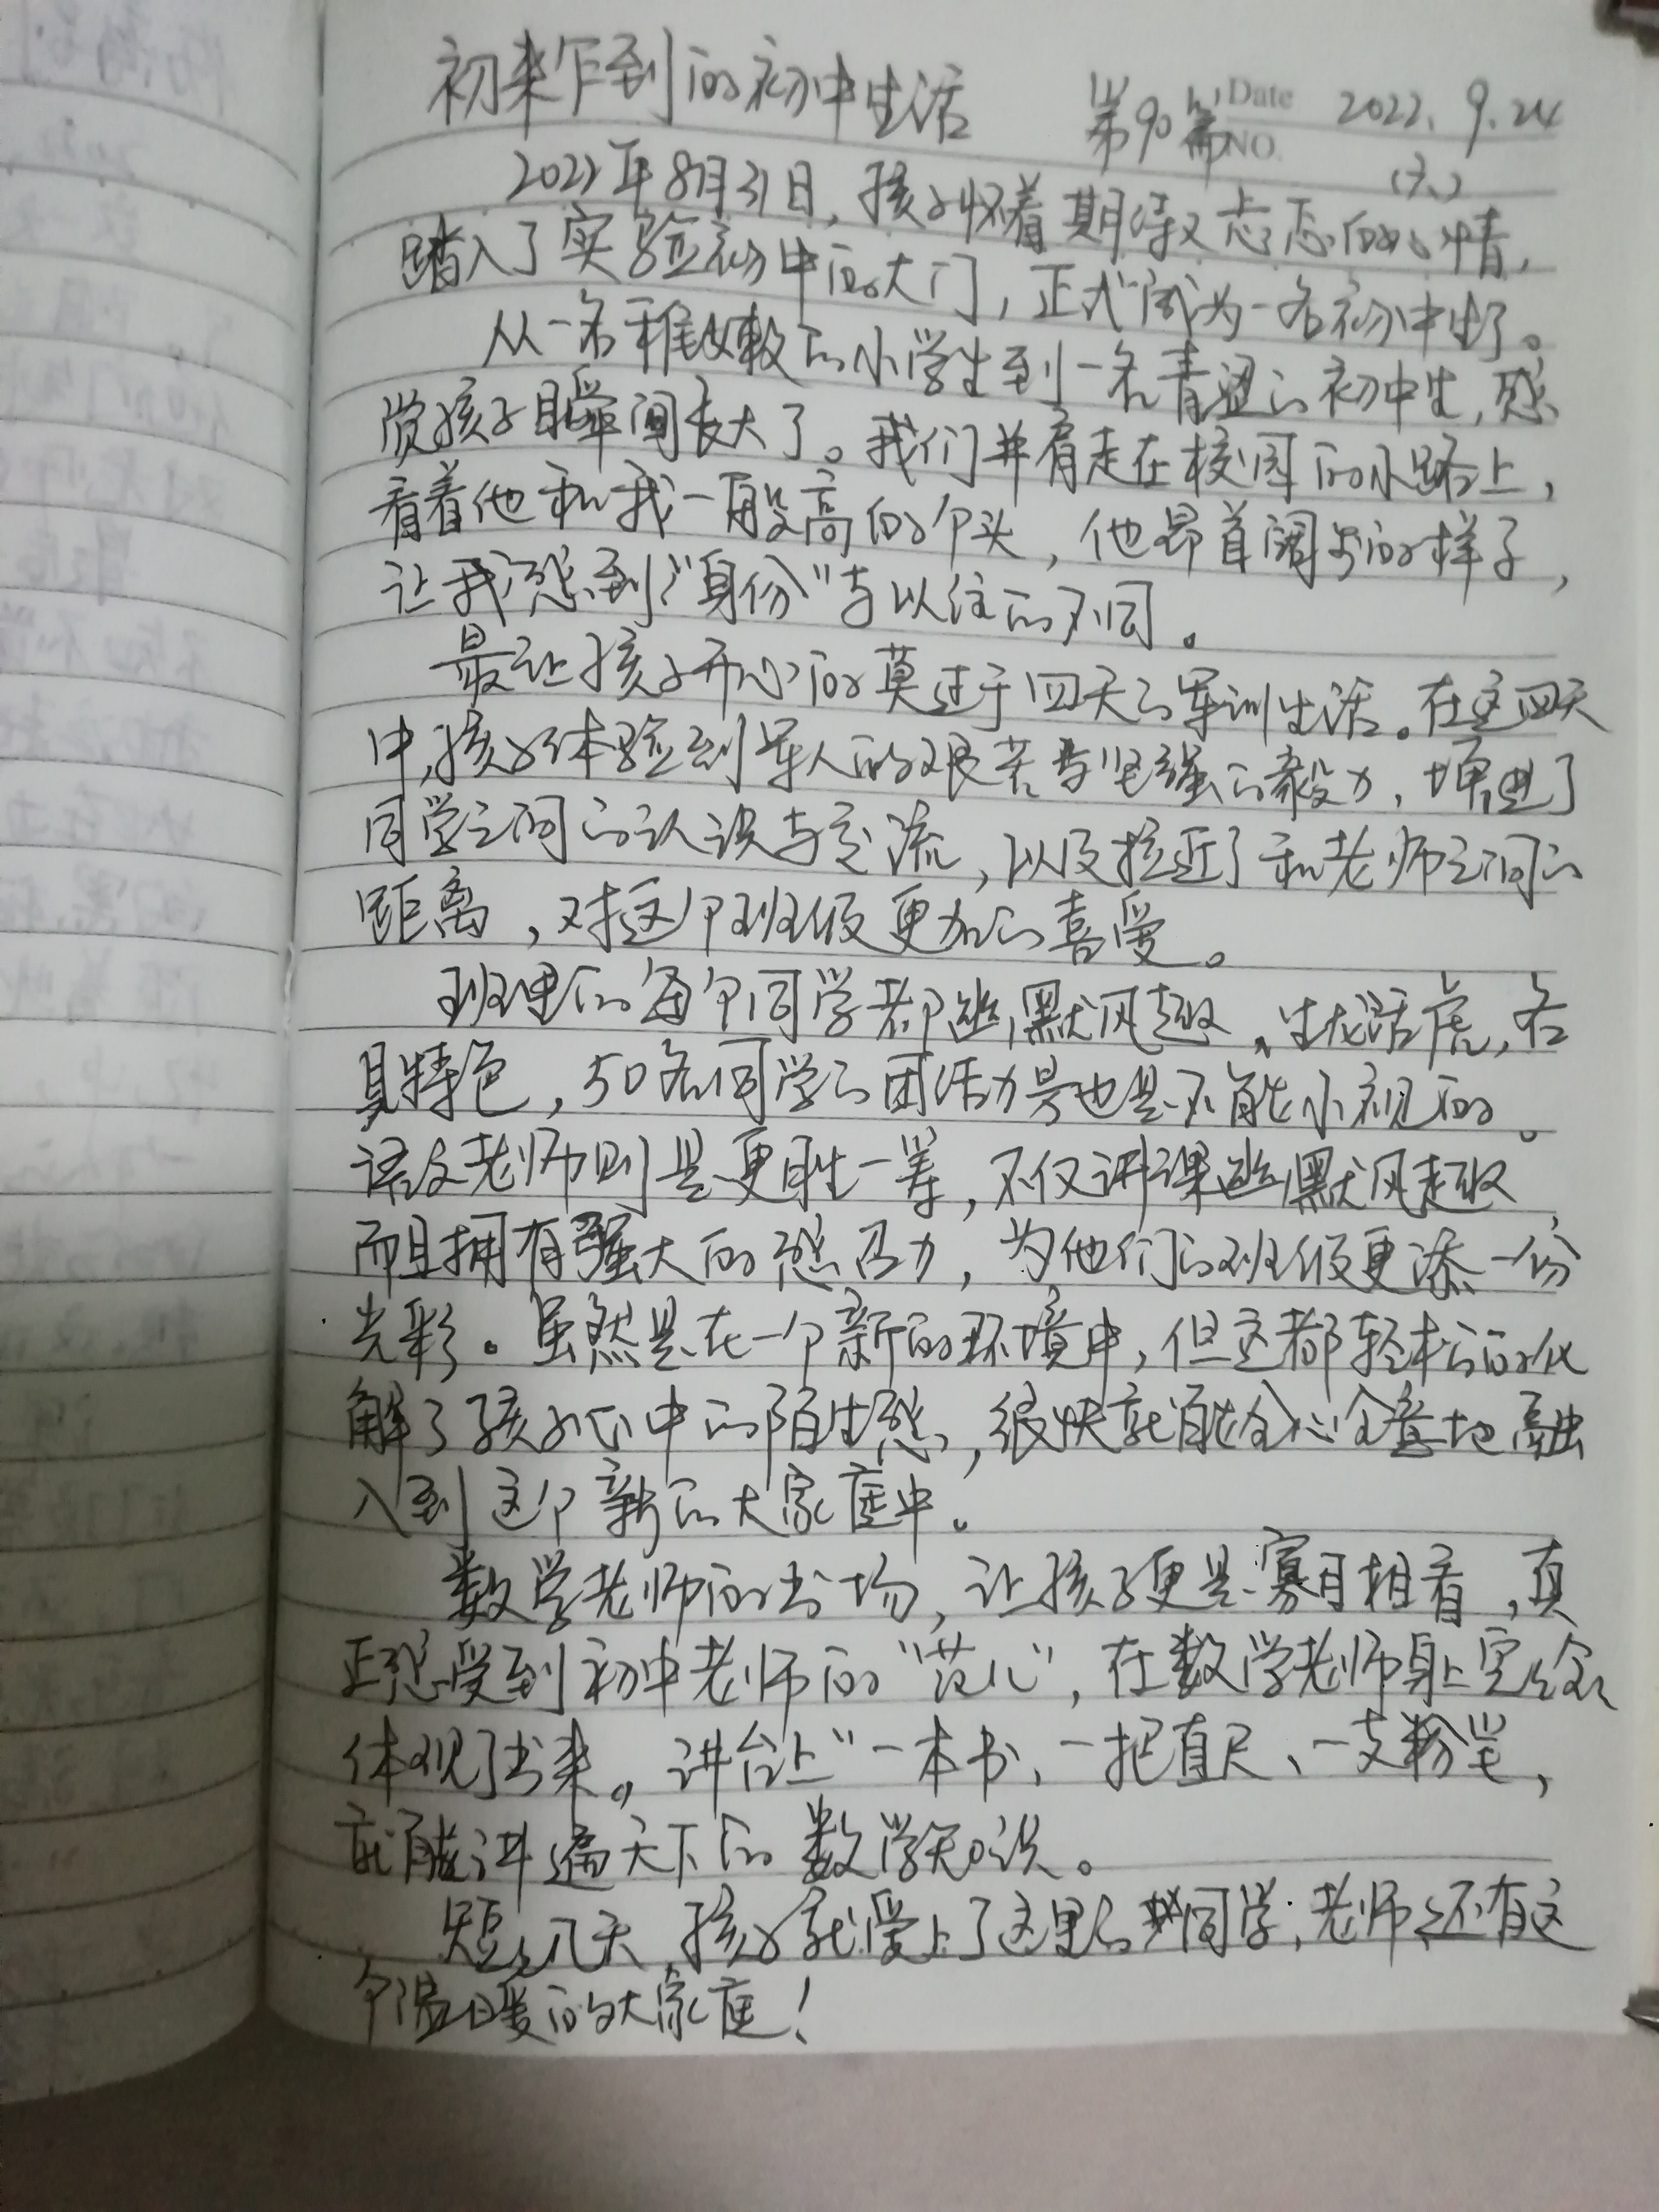 初来乍到的初中生活 第90篇 Date 2022.9.24
NO. (六)
2022年8月31日，孩子怀着期待又忐忑的心情，
踏入了实验初中的大门，正式成为一名初中生了。
从一名稚嫩的小学生到一名青涩的初中生，感
觉孩子瞬间长大了。我们并肩走在校园的小路上，
看着他和我一般高的个头，他昂首阔步的样子，
让我感到“身份”与以往的不同。
最让孩子开心的莫过于四天的军训生活。在这四天
中，孩子体验到军人的艰苦与坚强的毅力，增进了
同学之间的认识与交流，以及拉近了和老师之间的
距离，对这个班级更加的喜爱。
班里的每个同学都幽默风趣、生龙活虎，各
具特色，50名同学的团活力号也是不能小视的。
语文老师则是更胜一筹，不仅讲课幽默风趣，
而且拥有强大的感召力，为他们的班级更添一份
光彩。虽然是在一个新的环境中，但这都轻松的的化
解了孩子心中的陌生感，很快就能全心全意地融
入到这个新的大家庭中。
数学老师的出场，让孩子更是寡目相看，真
正感受到初中老师的“范儿”，在数学老师身上完全
体现了出来。讲台上“一本书、一把直尺、一支粉笔，
就能讲遍天下的数学知识。
短短几天，孩子就爱上了这里的同学，老师，还有这
个温暖的大家庭！